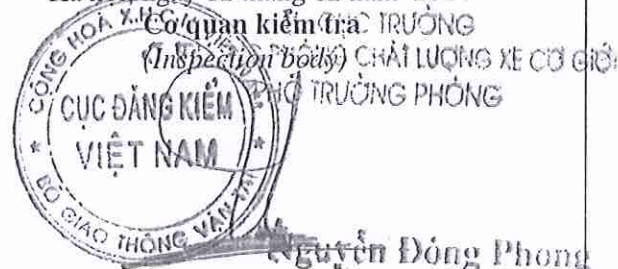 Cơ quan kiểm tra
(Inspection body)
CỤC TRƯỞNG
CHẤT LƯỢNG XE CƠ GIỚI
PHÓ TRƯỞNG PHÒNG
CỘNG HÒA X.H.C.N VIỆT NAM
CỤC ĐĂNG KIỂM
VIỆT NAM
BỘ GIAO THÔNG VẬN TẢI
Nguyễn Đông Phong